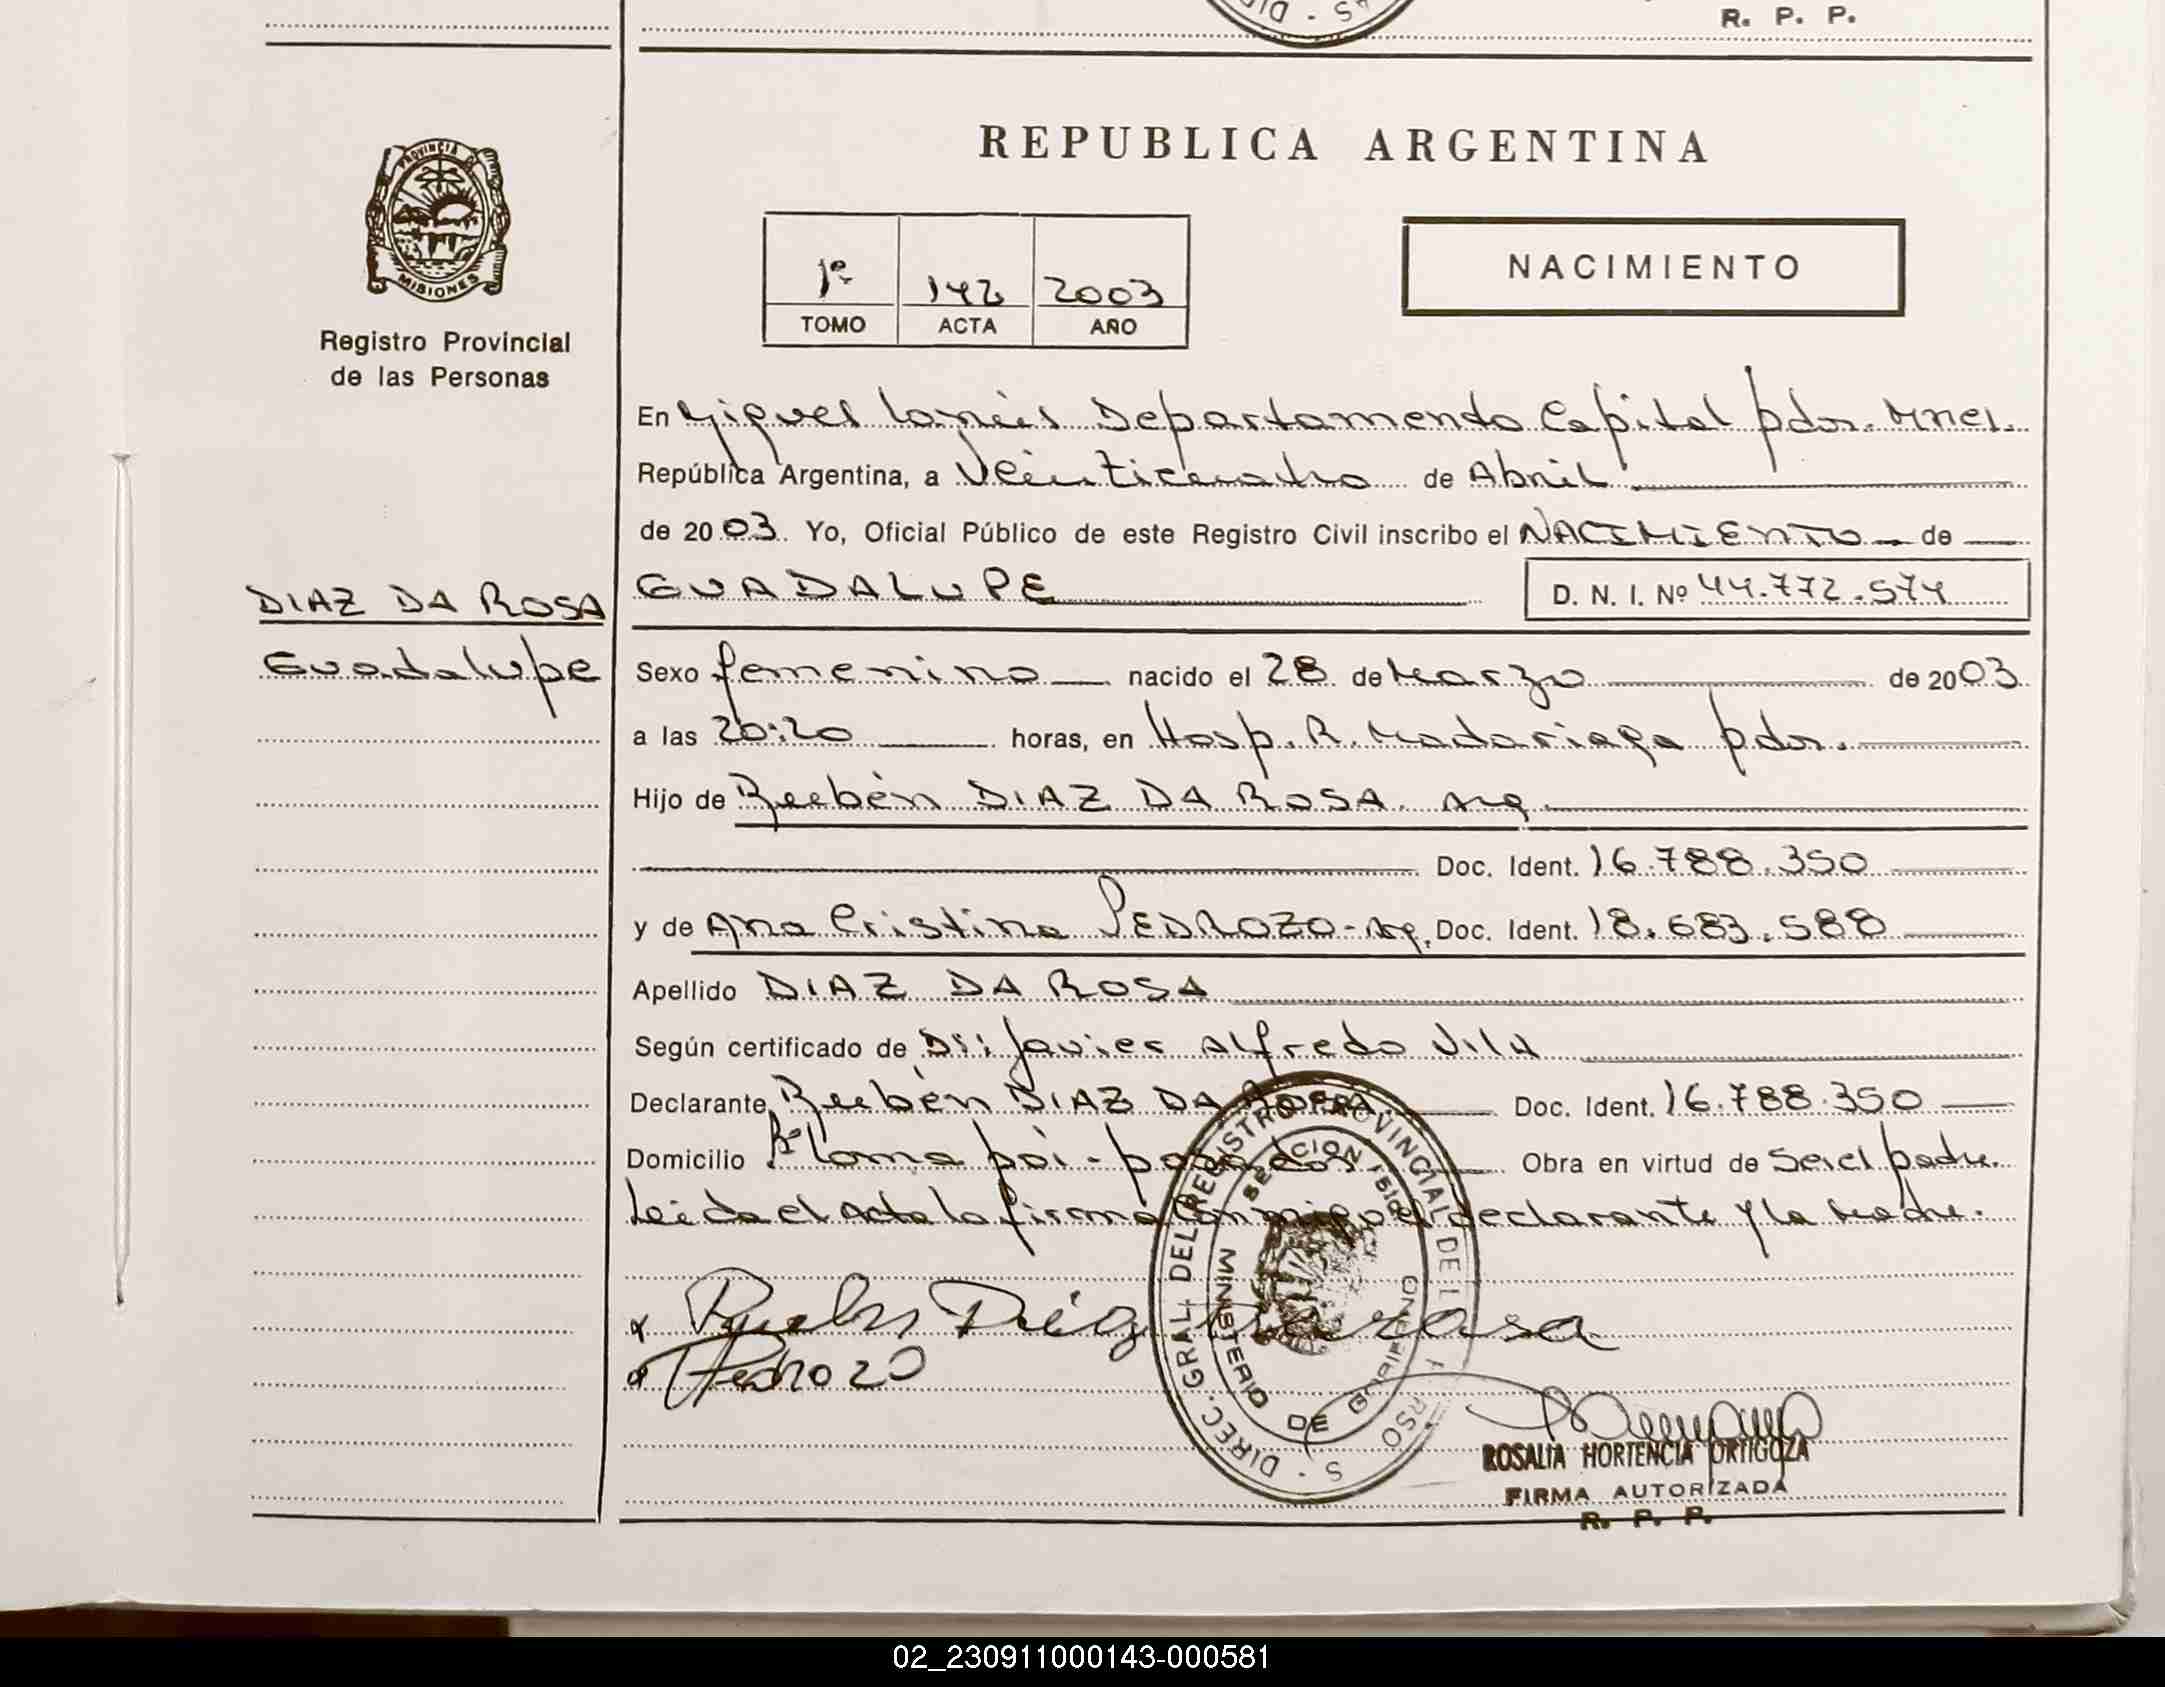 R. P. P.
REPUBLICA ARGENTINA
PROVINCIA DE
MISIONES
Registro Provincial
de las Personas
1º 142 2003
TOMO ACTA AÑO
NACIMIENTO
En Miguel Lanús Departamento Capital pdas. Mnes.
República Argentina, a Veinticuatro de Abril
de 2003. Yo, Oficial Público de este Registro Civil inscribo el NACIMIENTO de
DIAZ DA ROSA
Guadalupe
GUADALUPE D. N. I. Nº 44.772.574
Sexo femenino nacido el 28 de Marzo de 2003
a las 20:20 horas, en Hosp. R. Madariaga pdas.
Hijo de Rubén DIAZ DA ROSA. Arg.
Doc. Ident. 16.788.350
y de Ana Cristina PEDROZO - Arg. Doc. Ident. 18.683.588
Apellido DIAZ DA ROSA
Según certificado de Dr: Javier Alfredo Vila
Declarante Rubén DIAZ DA ROSA. Doc. Ident. 16.788.350
Domicilio Bº Loma poi - posadas. Obra en virtud de Ser el padre.
Leída el Acta la firma conmigo el declarante y la Madre.
Ruben Diaz Da rosa
Pedrozo
DIREC. GRAL. DEL REGISTRO PROVINCIAL DE L
MINISTERIO DE GOBIERNO
ROSALIA HORTENCIA ORTIGOZA
FIRMA AUTORIZADA
R. P. P.
02_230911000143-000581